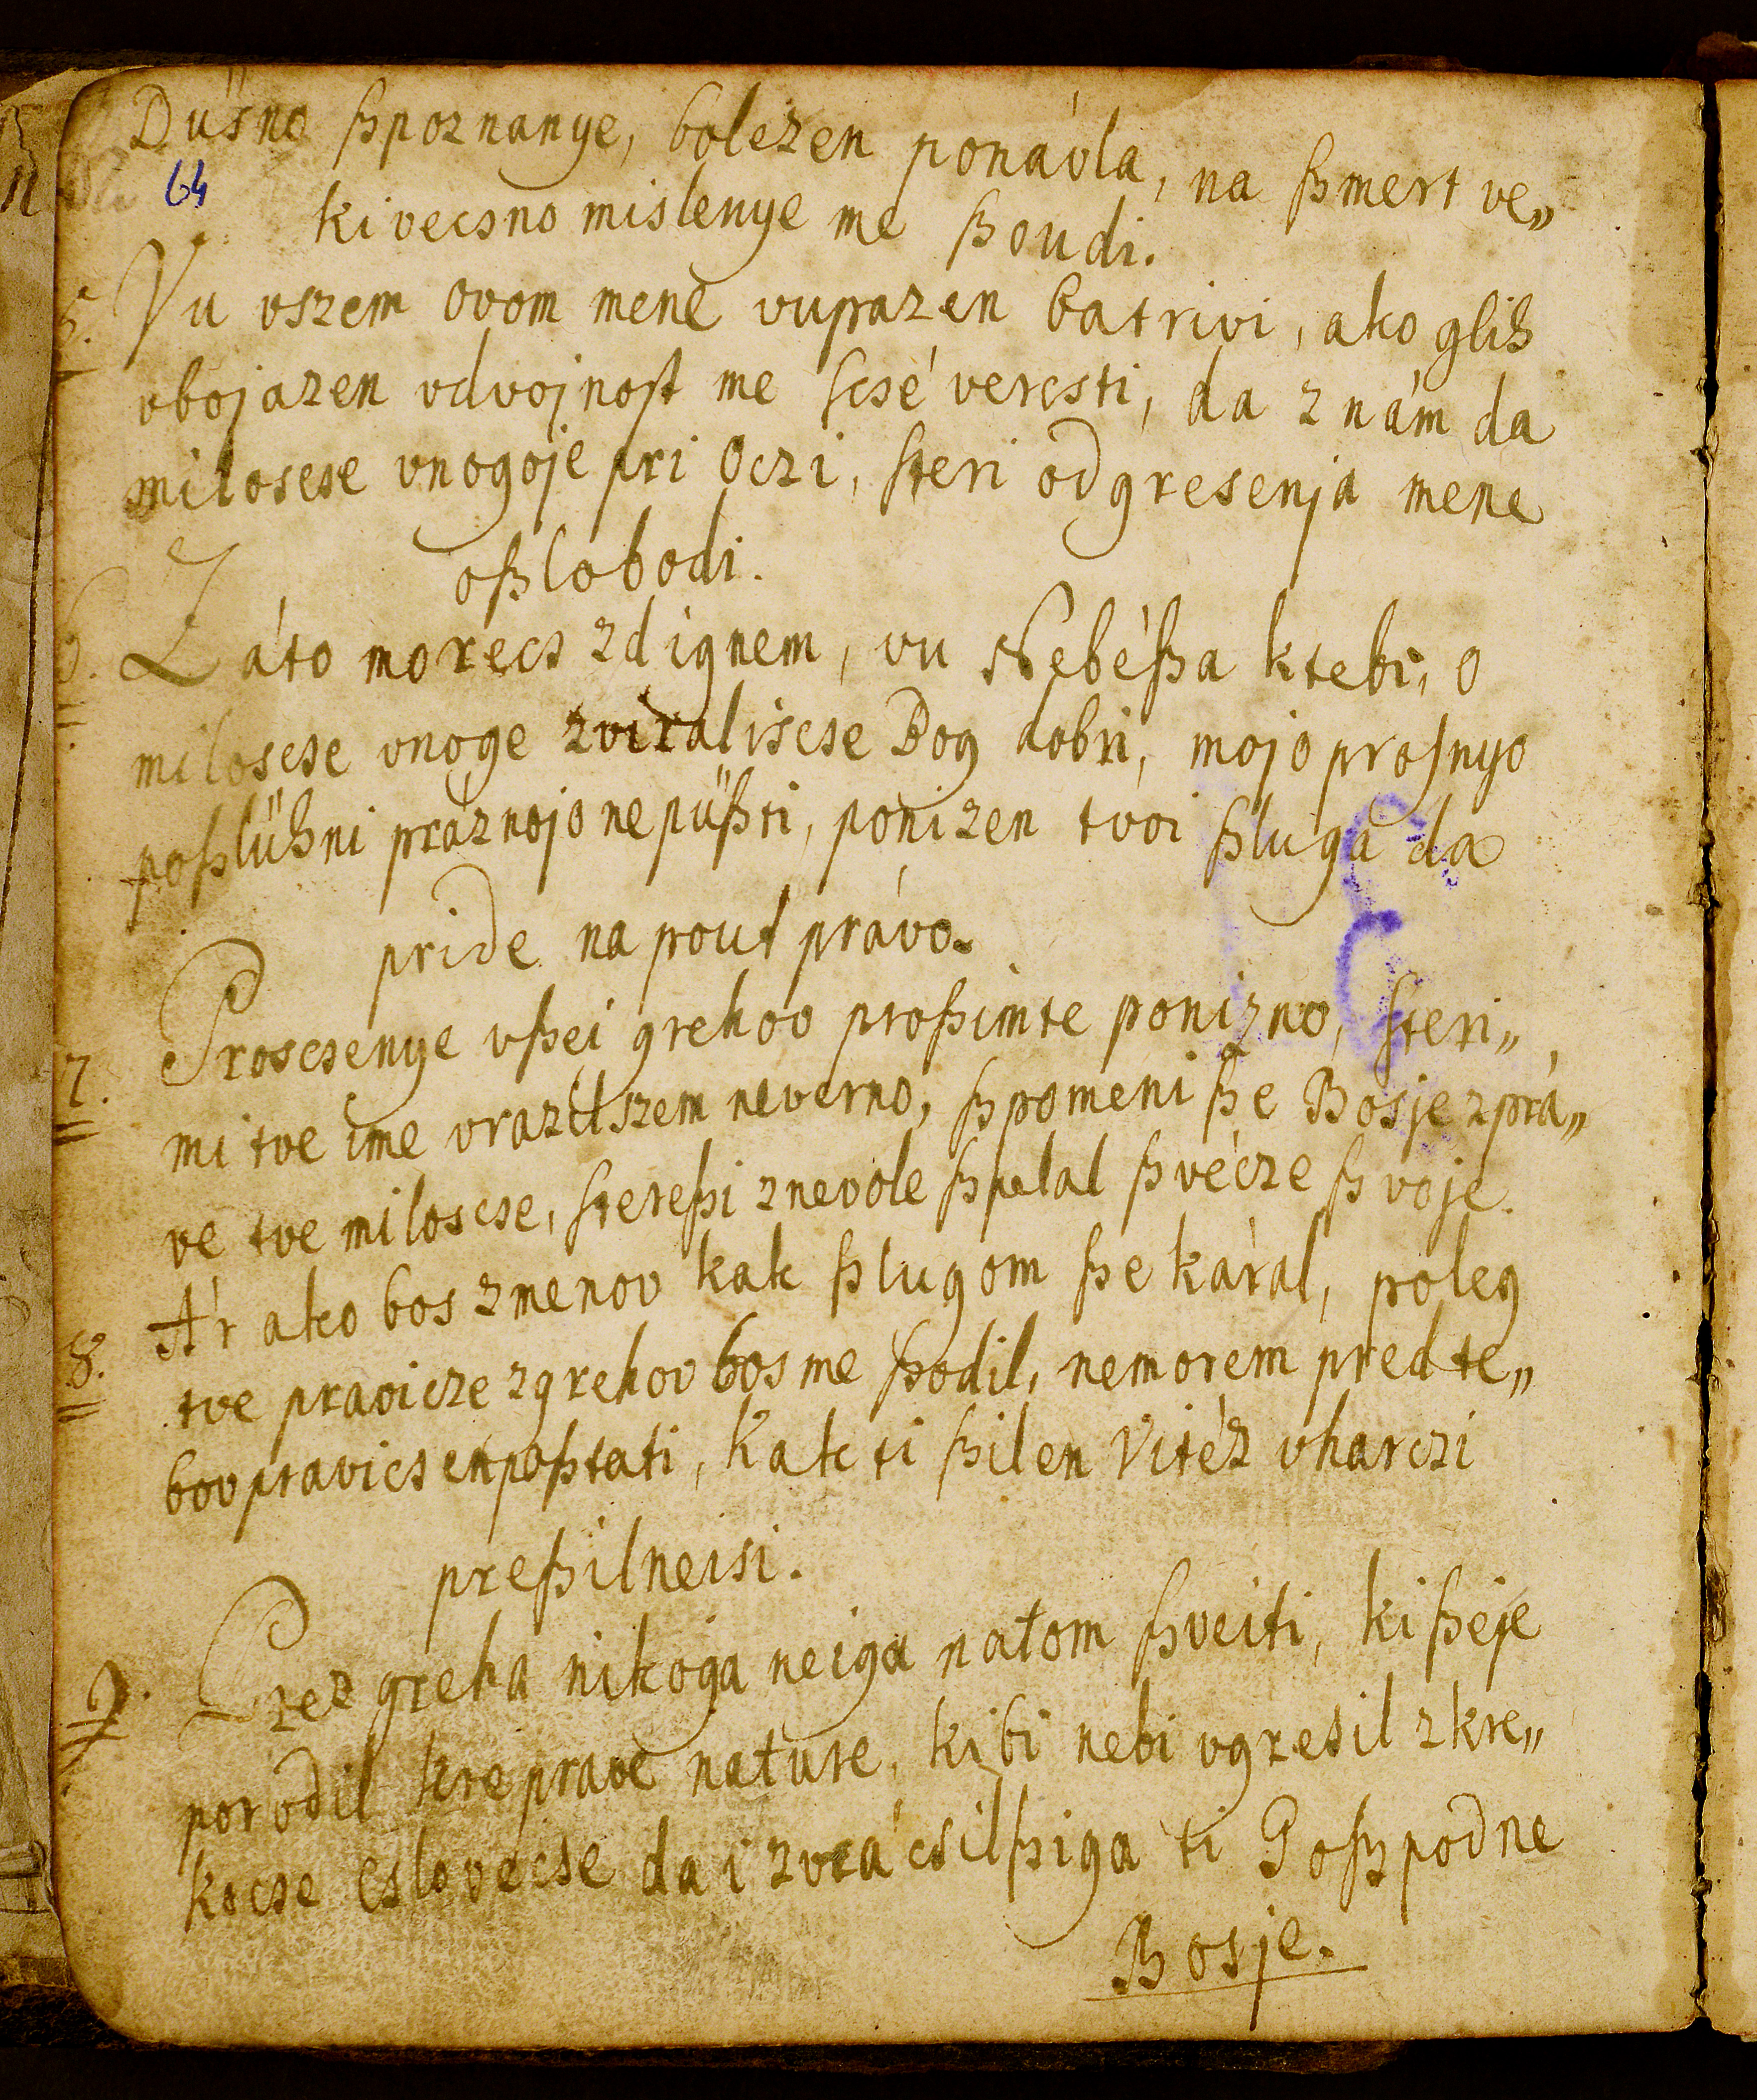 Düsno ßpoznanye, bolezen ponávla, na ßmert ve„
64
ki vecsno mislenye me ßoudi.
5. Vu vszem ovom mene vuprazen batrivi, ako glih
vbojazen vdvojnoſt me ſcsé vercsti, da znám da
miloscse vnogoje pri Oczi, ſteri od gresenja mene
oßlobodi.
6. Záto morecs zdignem, vu Nebéßa ktebi, o
miloscse vnoge zviraliscse Bog dobri, mojo proſnyo
poßlühni práznojo nepüßti, ponizen tvoi ßluga da
pride na pout právo.
7. Proscsenye vßei grehov proßimte ponizno, ſteri„
mi tve ime vrazilszem neverno, ßpomeni ße Bosje zprá„
ve tve miloscse, ſtereßi znevole ßpelal ßvécze ßvoje.
8. Ár ako bos zmenov kak ßlugom ße káral, poleg
tve pravicze zgrehov bos me ßodil, nemorem pred te„
bov pravicsen poßtati, Kak ti ßilen Vitéz vharczi
preßilneisi.
9. Prez greha nikoga neiga natom ßveiti, ki ßeje
porodil kre prave nature, ki bi nebi vgresil zkre„
kocse cslovecse da i zvrácsilßiga ti Goßpodne
Bosje.